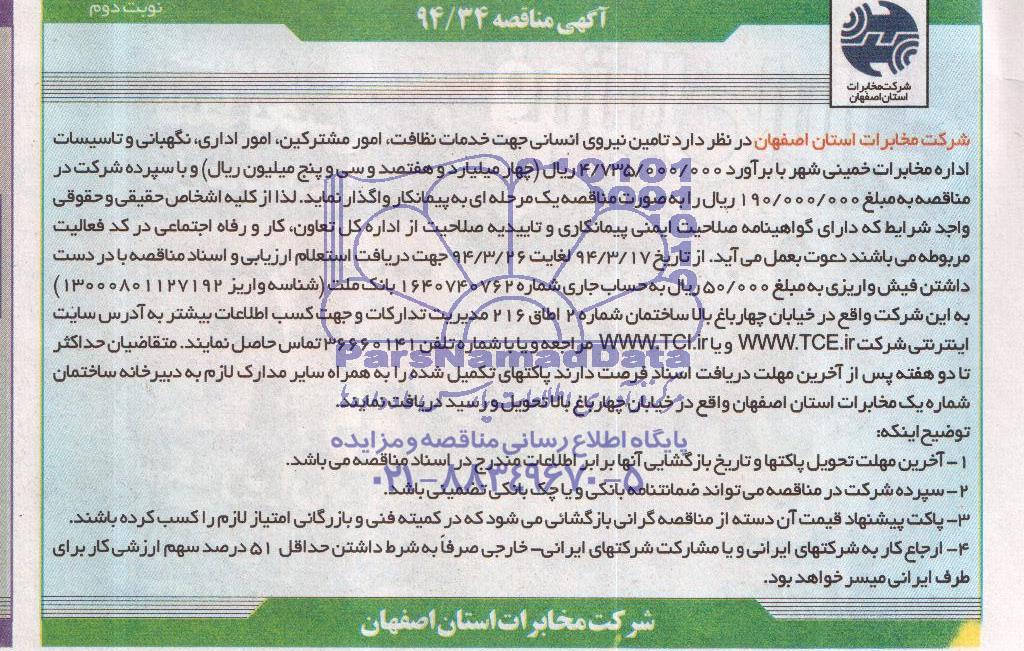 نوبت دوم
آگهی مناقصه ۹۴/۳۴
شرکت مخابرات
استان اصفهان
شرکت مخابرات استان اصفهان در نظر دارد تامین نیروی انسانی جهت خدمات نظافت، امور مشترکین، امور اداری، نگهبانی و تاسیسات
اداره مخابرات خمینی شهر با برآورد ۴/۷۳۵/۰۰۰/۰۰۰ ریال (چهار میلیارد و هفتصد و سی و پنج میلیون ریال) و با سپرده شرکت در
مناقصه به مبلغ ۱۹۰/۰۰۰/۰۰۰ ریال را به صورت مناقصه یک مرحله ای به پیمانکار واگذار نماید. لذا از کلیه اشخاص حقیقی و حقوقی
واجد شرایط که دارای گواهینامه صلاحیت ایمنی پیمانکاری و تاییدیه صلاحیت از اداره کل تعاون، کار و رفاه اجتماعی در کد فعالیت
مربوطه می باشند دعوت بعمل می آید. از تاریخ ۹۴/۳/۱۷ لغایت ۹۴/۳/۲۶ جهت دریافت استعلام ارزیابی و اسناد مناقصه با در دست
داشتن فیش واریزی به مبلغ ۵۰/۰۰۰ ریال به حساب جاری شماره ۱۶۴۰۷۴۰۷۶۲ بانک ملت (شناسه واریز ۱۳۰۰۰۸۰۱۱۲۷۱۹۲)
به این شرکت واقع در خیابان چهارباغ بالا ساختمان شماره ۲ اطاق ۲۱۶ مدیریت تدارکات و جهت کسب اطلاعات بیشتر به آدرس سایت
اینترنتی شرکت WWW.TCE.ir و یا WWW.TCI.ir مراجعه و یا با شماره تلفن ۳۶۶۶۰۱۴۱ تماس حاصل نمایند. متقاضیان حداکثر
تا دو هفته پس از آخرین مهلت دریافت اسناد فرصت دارند پاکتهای تکمیل شده را به همراه سایر مدارک لازم به دبیرخانه ساختمان
شماره یک مخابرات استان اصفهان واقع در خیابان چهارباغ بالا تحویل و رسید دریافت نمایند.
توضیح اینکه:
۱- آخرین مهلت تحویل پاکتها و تاریخ بازگشایی آنها برابر اطلاعات مندرج در اسناد مناقصه می باشد.
۲- سپرده شرکت در مناقصه می تواند ضمانتنامه بانکی و یا چک بانکی تضمینی باشد.
۳- پاکت پیشنهاد قیمت آن دسته از مناقصه گرانی بازگشائی می شود که در کمیته فنی و بازرگانی امتیاز لازم را کسب کرده باشند.
۴- ارجاع کار به شرکتهای ایرانی و یا مشارکت شرکتهای ایرانی- خارجی صرفاً به شرط داشتن حداقل ۵۱ درصد سهم ارزشی کار برای
طرف ایرانی میسر خواهد بود.
شرکت مخابرات استان اصفهان
ParsNamadData
پایگاه اطلاع رسانی مناقصه و مزایده
۰۲۱-۸۸۳۴۹۶۷۰-۵